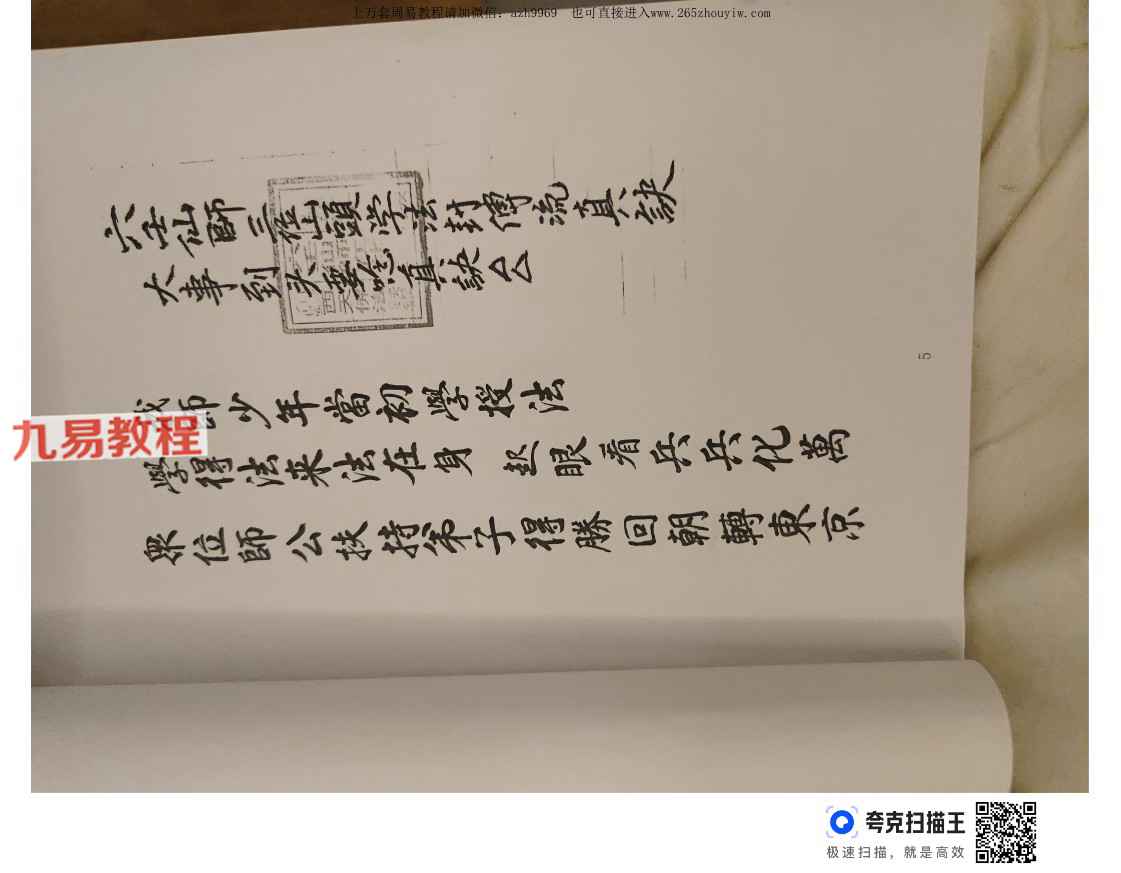 上万套周易教程请加微信：azh9969 也可直接进入www.265zhouyiw.com
六壬仙師三位山頭学法封傳流真訣
大事到头要唸真訣△△
師少年當初學授法
學得法来法在身 眼看兵兵化萬
眾位師公扶持弟子得勝回朝轉東京
5
九易教程
夸克扫描王
极速扫描，就是高效